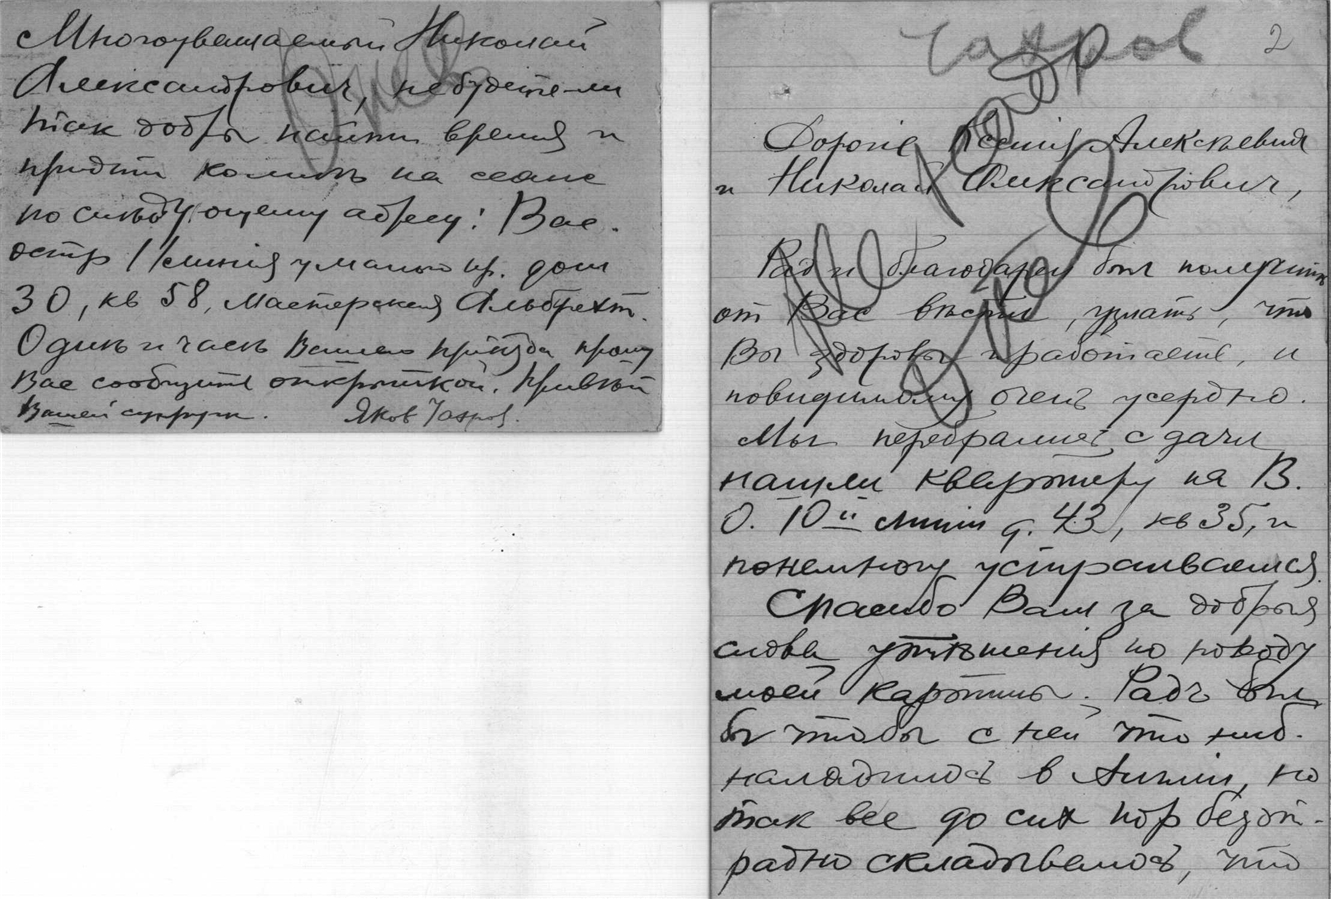 Многоуважаемый Николай
Александрович, не будете-ли
так добры найти время и
придти ко мнѣ на сеанс
по слѣдующему адресу: Вас.
остр 11 линія у малого пр. дом
30, кв 58, мастерская Альбрехт.
О днѣ и часѣ Вашего пріѣзда прошу
Вас сообщите открыткой. Привѣт
Вашей супруге. Яков Чахров.
Чахров 2
Дорогіе Ксенія Алексѣевна
и Николай Александрович,
Рад и благодарен был получить
от Вас вѣсти, узнать, что
Вы здоровы и работаете, и
повидимому очень усердно.
Мы перебрались с дачи
нашли квартиру на В.
О. 10ой линіи д. 43, кв 35, и
понемногу устраиваемся.
Спасибо Вам за добрыя
слова утѣшенія по поводу
моей картины. Радъ был
бы чтобы с ней что ниб.
наладилось в Англіи, но
так все до сих пор безот-
радно складывалось, что